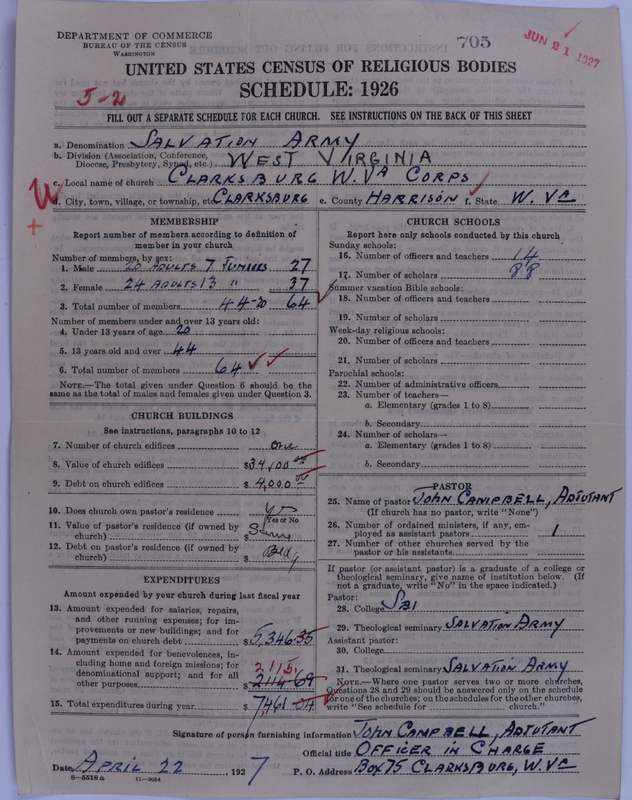 DEPARTMENT OF COMMERCE
BUREAU OF THE CENSUS
WASHINGTON
705
JUN 21 1927
UNITED STATES CENSUS OF RELIGIOUS BODIES
SCHEDULE: 1926
5-2
FILL OUT A SEPARATE SCHEDULE FOR EACH CHURCH. SEE INSTRUCTIONS ON THE BACK OF THIS SHEET
a. Denomination SALVATION ARMY
b. Division (Association, Conference, Diocese, Presbytery, Synod, etc.) WEST VIRGINIA
c. Local name of church CLARKSBURG W. VA CORPS
d. City, town, village, or township, etc. CLARKSBURG e. County HARRISON f. State W. Va
MEMBERSHIP
Report number of members according to definition of
member in your church
Number of members, by sex:
1. Male 20 ADULTS 7 JUNIORS 27
2. Female 24 ADULTS 13 " 37
3. Total number of members 44-20 64
Number of members under and over 13 years old:
4. Under 13 years of age 20
5. 13 years old and over 44
6. Total number of members 64
NOTE.—The total given under Question 6 should be the
same as the total of males and females given under Question 3.
CHURCH BUILDINGS
See instructions, paragraphs 10 to 12
7. Number of church edifices one
8. Value of church edifices $34,000.00
9. Debt on church edifices $4,000.00
10. Does church own pastor's residence? yes
Yes or No
11. Value of pastor's residence (if owned by
church) $
12. Debt on pastor's residence (if owned by
church) $
EXPENDITURES
Amount expended by your church during last fiscal year
13. Amount expended for salaries, repairs,
and other running expenses; for im-
provements or new buildings; and for
payments on church debt $5,346.35
14. Amount expended for benevolences, in-
cluding home and foreign missions; for
denominational support; and for all
other purposes $2114.69
2,115
15. Total expenditures during year $7,461.04
CHURCH SCHOOLS
Report here only schools conducted by this church
Sunday schools:
16. Number of officers and teachers 14
17. Number of scholars 88
Summer vacation Bible schools:
18. Number of officers and teachers
19. Number of scholars
Week-day religious schools:
20. Number of officers and teachers
21. Number of scholars
Parochial schools:
22. Number of administrative officers
23. Number of teachers—
a. Elementary (grades 1 to 8)
b. Secondary
24. Number of scholars—
a. Elementary (grades 1 to 8)
b. Secondary
PASTOR
25. Name of pastor JOHN CAMPBELL, ADJUTANT
(If church has no pastor, write "None")
26. Number of ordained ministers, if any, em-
ployed as assistant pastors 1
27. Number of other churches served by the
pastor or his assistants
If pastor (or assistant pastor) is a graduate of a college or
theological seminary, give name of institution below. (If
not a graduate, write "No" in the space indicated.)
Pastor:
28. College
29. Theological seminary SALVATION ARMY
Assistant pastor:
30. College
31. Theological seminary SALVATION ARMY
NOTE.—Where one pastor serves two or more churches,
Questions 28 and 29 should be answered only on the schedule
for one of the churches; on the schedules for the other churches,
write "See schedule for church."
Signature of person furnishing information JOHN CAMPBELL, ADJUTANT
Official title OFFICER IN CHARGE
Date APRIL 22, 1927 P. O. Address BOX 75 CLARKSBURG, W. Va
8-5518a 11-9024